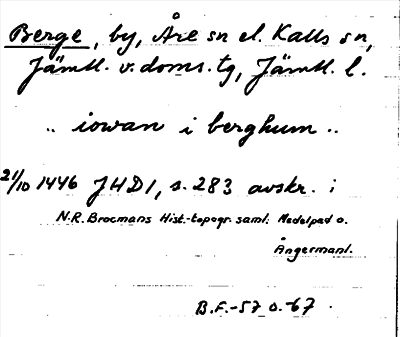 Berge, by, Åre sn el. Kalls sn,
Jämtl. v. doms. tg, Jämtl. l.
.. iowan i berghum ..
21/10 1446 JHD 1, s. 283 avskr. i
N.R. Brocmans Hist.-topogr. saml. Medelpad o.
Ångermanl.
B.F.-57 o.-67.